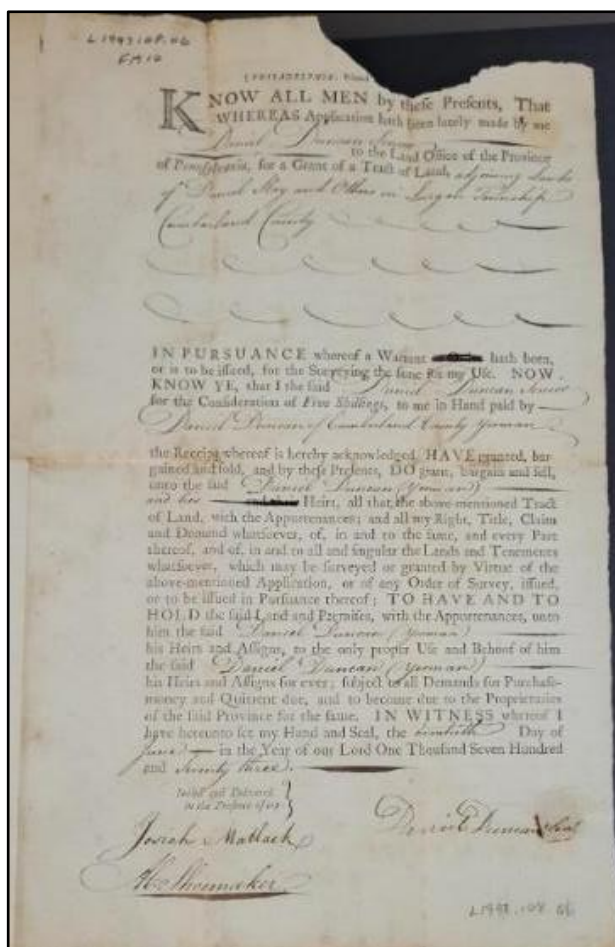 L1998.108.06
(PHILADELPHIA: Printed
KNOW ALL MEN by these Presents, That
WHEREAS Application hath been lately made by me
Daniel Duncan Senior
to the Land Office of the Province
of Pennsylvania, for a Grant of a Tract of Land, adjoining Lands
of Daniel and Others in Lurgan Township
Cumberland County
IN PURSUANCE whereof a Warrant hath been,
or is to be issued, for the Surveying the same for my Use. NOW
KNOW YE, that I the said Daniel Duncan Senior
for the Consideration of Five Shillings, to me in Hand paid by
Daniel Duncan of Cumberland County Yeoman
the Receipt whereof is hereby acknowledged, HAVE granted, bar-
gained and sold, and by these Presents, DO grant, bargain and sell,
unto the said Daniel Duncan (yeoman)
and his Heirs, all that the above-mentioned Tract
of Land, with the Appurtenances; and all my Right, Title, Claim
and Demand whatsoever, of, in and to the same, and every Part
thereof, and of, in and to all and singular the Lands and Tenements
whatsoever, which may be surveyed or granted by Virtue of the
above-mentioned Application, or of any Order of Survey, issued,
or to be issued in Pursuance thereof; TO HAVE AND TO
HOLD the said Land and Premises, with the Appurtenances, unto
him the said Daniel Duncan (yeoman)
his Heirs and Assigns, to the only proper Use and Behoof of him
the said Daniel Duncan (yeoman)
his Heirs and Assigns for ever; subject to all Demands for Purchase-
money and Quitrent due, and to become due to the Proprietaries
of the said Province for the same. IN WITNESS whereof I
have hereunto set my Hand and Seal, the Day of
June in the Year of our Lord One Thousand Seven Hundred
and Seventy three.
Sealed and Delivered
in the Presence of us
Josiah Matlack
Daniel Duncan Seal
Shoemaker
L1998.108.06